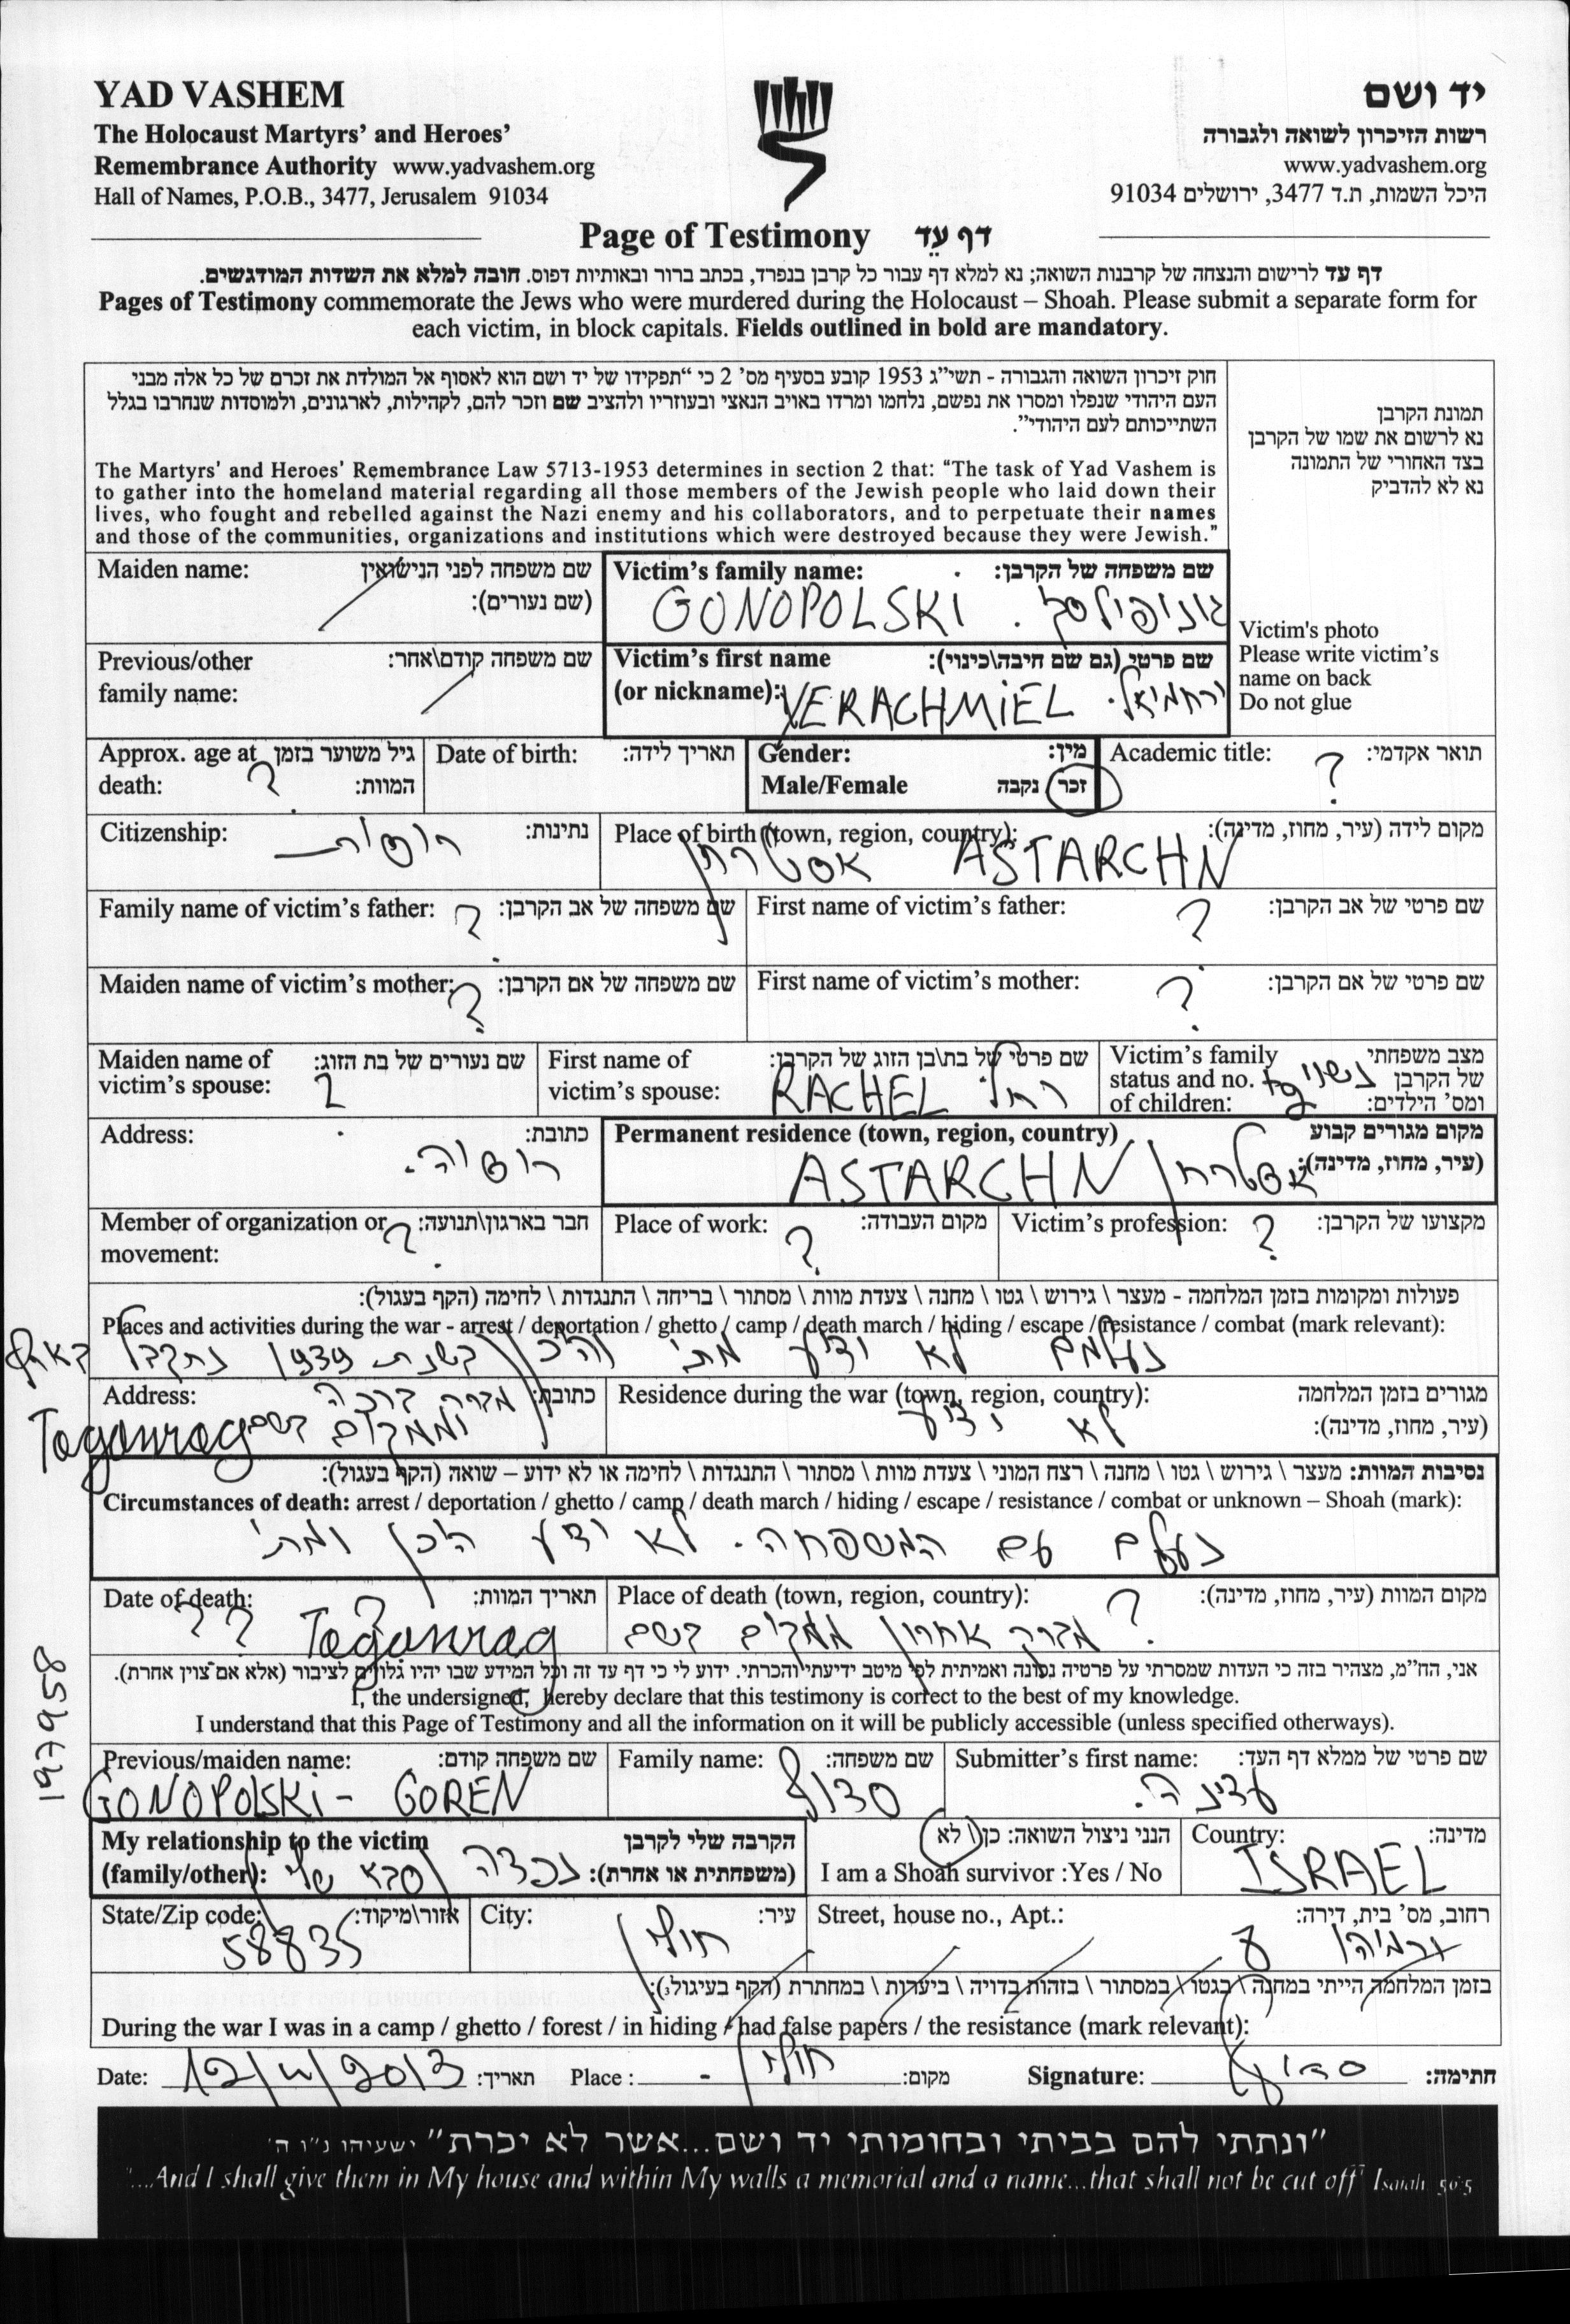 YAD VASHEM
יד ושם
The Holocaust Martyrs' and Heroes'
רשות הזיכרון לשואה ולגבורה
Remembrance Authority www.yadvashem.org
www.yadvashem.org
Hall of Names, P.O.B., 3477, Jerusalem 91034
היכל השמות, ת.ד 3477, ירושלים 91034
Page of Testimony דף עֵד
דף עד לרישום והנצחה של קרבנות השואה; נא למלא דף עבור כל קרבן בנפרד, בכתב ברור ובאותיות דפוס. חובה למלא את השדות המודגשים.
Pages of Testimony commemorate the Jews who were murdered during the Holocaust – Shoah. Please submit a separate form for
each victim, in block capitals. Fields outlined in bold are mandatory.
חוק זיכרון השואה והגבורה - תשי"ג 1953 קובע בסעיף מס' 2 כי "תפקידו של יד ושם הוא לאסוף אל המולדת את זכרם של כל אלה מבני
העם היהודי שנפלו ומסרו את נפשם, נלחמו ומרדו באויב הנאצי ובעוזריו ולהציב שם וזכר להם, לקהילות, לארגונים, ולמוסדות שנחרבו בגלל
השתייכותם לעם היהודי".
The Martyrs' and Heroes' Remembrance Law 5713-1953 determines in section 2 that: "The task of Yad Vashem is
to gather into the homeland material regarding all those members of the Jewish people who laid down their
lives, who fought and rebelled against the Nazi enemy and his collaborators, and to perpetuate their names
and those of the communities, organizations and institutions which were destroyed because they were Jewish."
תמונת הקרבן
נא לרשום את שמו של הקרבן
בצד האחורי של התמונה
נא לא להדביק
Victim's photo
Please write victim's
name on back
Do not glue
Maiden name: שם משפחה לפני הנישואין
(שם נעורים):
Victim's family name: שם משפחה של הקרבן:
GONOPOLSKI . גונופולסקי
Previous/other שם משפחה קודם\אחר:
family name:
Victim's first name שם פרטי (גם שם חיבה\כינוי):
(or nickname): YERACHMIEL ירחמיאל.
Approx. age at גיל משוער בזמן
death: ? המוות:
Date of birth: תאריך לידה:
Gender: מין:
Male/Female זכר נקבה
Academic title: ? תואר אקדמי:
Citizenship: רוסיה נתינות:
Place of birth (town, region, country): מקום לידה (עיר, מחוז, מדינה):
אסטרחן ASTARCHN
Family name of victim's father: ? שם משפחה של אב הקרבן:
First name of victim's father: ? שם פרטי של אב הקרבן:
Maiden name of victim's mother: ? שם משפחה של אם הקרבן:
First name of victim's mother: ? שם פרטי של אם הקרבן:
Maiden name of שם נעורים של בת הזוג:
victim's spouse: ?
First name of שם פרטי של בת\בן הזוג של הקרבן:
victim's spouse: RACHEL רחל
Victim's family מצב משפחתי
status and no. של הקרבן
of children: ומס' הילדים:
Address: כתובת:
רוסיה.
Permanent residence (town, region, country) מקום מגורים קבוע
ASTARCHN אסטרחן (עיר, מחוז, מדינה):
Member of organization or ? חבר בארגון\תנועה:
movement:
Place of work: ? מקום העבודה:
Victim's profession: ? מקצועו של הקרבן:
פעולות ומקומות בזמן המלחמה - מעצר \ גירוש \ גטו \ מחנה \ צעדת מוות \ מסתור \ בריחה \ התנגדות \ לחימה (הקף בעגול):
Places and activities during the war - arrest / deportation / ghetto / camp / death march / hiding / escape / resistance / combat (mark relevant):
נעלם לא ידוע מתי והיכן בשנת 1939 נתקבל
Address: כתובת:
Taganrag וממקום בשם
Residence during the war (town, region, country): מגורים בזמן המלחמה
לא ידוע (עיר, מחוז, מדינה):
נסיבות המוות: מעצר \ גירוש \ גטו \ מחנה \ רצח המוני \ צעדת מוות \ מסתור \ התנגדות \ לחימה או לא ידוע – שואה (הקף בעגול):
Circumstances of death: arrest / deportation / ghetto / camp / death march / hiding / escape / resistance / combat or unknown – Shoah (mark):
נעלם עם המשפחה. לא ידוע היכן ומתי
Date of death: ? ? ? תאריך המוות:
Place of death (town, region, country): ? מקום המוות (עיר, מחוז, מדינה):
Taganrag אחרון ממקום בשם
אני, הח"מ, מצהיר בזה כי העדות שמסרתי על פרטיה נכונה ואמיתית לפי מיטב ידיעתי והכרתי. ידוע לי כי דף עד זה וכל המידע שבו יהיו גלויים לציבור (אלא אם צוין אחרת).
I, the undersigned, hereby declare that this testimony is correct to the best of my knowledge.
I understand that this Page of Testimony and all the information on it will be publicly accessible (unless specified otherways).
197958
Previous/maiden name: שם משפחה קודם:
GONOPOLSKI - GOREN
Family name: שם משפחה:
Submitter's first name: שם פרטי של ממלא דף העד:
My relationship to the victim הקרבה שלי לקרבן
(family/other): סבא שלי נכדה (משפחתית או אחרת):
הנני ניצול השואה: כן\ לא
I am a Shoah survivor :Yes / No
Country: מדינה:
ISRAEL
State/Zip code: אזור\מיקוד:
58835
City: עיר:
חולון
Street, house no., Apt.: רחוב, מס' בית, דירה:
ירמיהו 8
בזמן המלחמה הייתי במחנה \ בגטו \ במסתור \ בזהות בדויה \ ביערות \ במחתרת (הקף בעיגול):
During the war I was in a camp / ghetto / forest / in hiding / had false papers / the resistance (mark relevant):
Date: תאריך: Place : חולון מקום: Signature: חתימה:
"ונתתי להם בביתי ובחומותי יד ושם...אשר לא יכרת" ישעיהו נ"ו ה'
"...And I shall give them in My house and within My walls a memorial and a name...that shall not be cut off" Isaiah 56:5